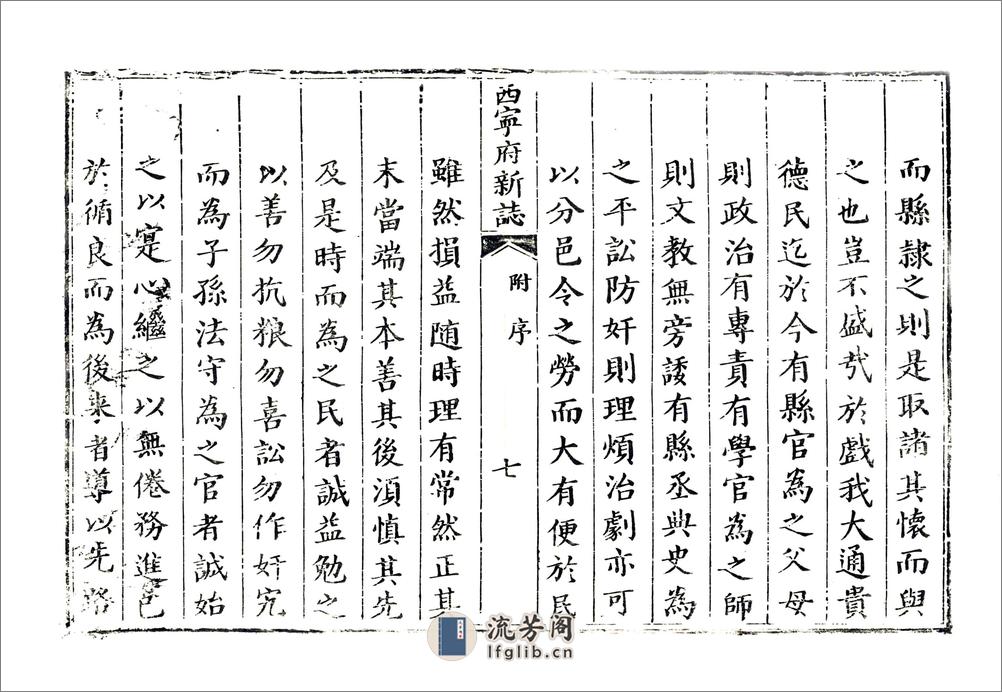 而縣隷之則是取諸其懷而與
之也豈不盛哉於戲我大通貴
德民迄於今有縣官為之父母
則政治有專責有學官為之師
則文教無旁諉有縣丞典史為
之平訟防奸則理煩治劇亦可
以分邑令之勞而大有便於民
西寧府新誌
附
序
七
雖然損益随時理有常然正其
末當端其本善其後湏慎其先
及是時而為之民者誠益勉之
以善勿抗粮勿喜訟勿作奸宄
而為子孫法守為之官者誠始
之以寔心繼之以無倦務進己
於循良而為後来者導以先路
流芳阁
lfglib.cn